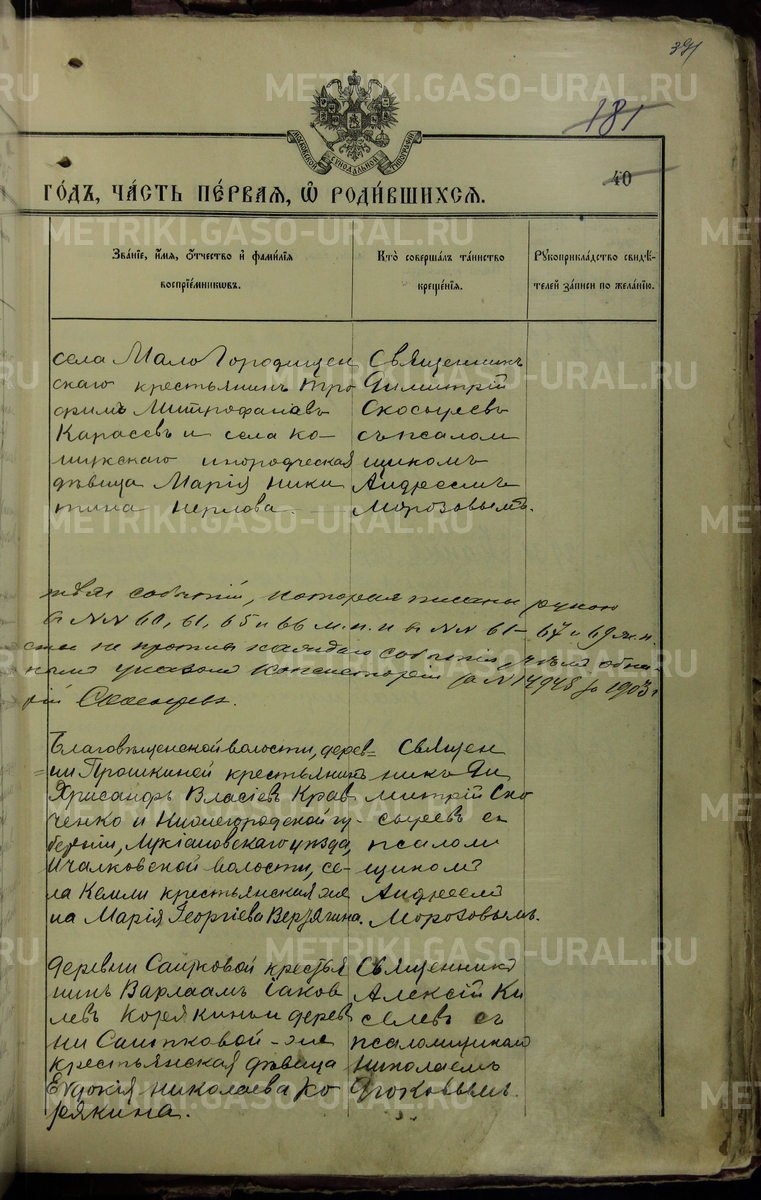 391
181
МОСКОВСКОЙ СѴНОДАЛЬНОЙ ТИПОГРАФІИ
40
ГО́ДЪ, ЧА́СТЬ ПЕ́РВАЯ, Ѡ РОДИ́ВШИХСЯ.
Зва́нїе, и́мя, о́тчество и фами́лїя
воспрїе́мниковъ.
Кто̀ соверша́лъ та́инство
креще́нїя.
Рꙋкоприкла́дство свидѣ́-
телей за́писи по жела́нїю.
села Мало Городищен
скаго крестьянинъ Тро
фимъ Митрофановъ
Карасевъ и села Ко
инородческая
дѣвица Марія Ники
тина
Священникъ
Димитрій
Скосыревъ
съ псалом
щикомъ
Андреемъ
Морозовымъ.
событій, которая писаны рукою
въ NN 60, 61, 65 и 66 м.п. и въ NN 61-67 и 69 ж.п.
не противъ каждаго событія
указом Консисторіи за N 14948 1903 г
Благовѣщенской волости, дерев=
=ни Прошкиной крестьянинъ
Хрисанфъ Власіевъ Крав
ченко и Нижегородской гу-
берніи, Лукіановскаго уѣзда,
Ичалковской волости, се-
ла Кемли крестьянская же
на Марія Георгіева Верзягина.
Священ
никъ Ди
митрій Ско
сыревъ съ
псалом
щикомъ
Андреемъ
Морозовымъ.
деревни Саитковой крестья
нинъ Варлаамъ Іаков
левъ Корякинъ и дерев
ни Саитковой-же
крестьянская дѣвица
Евдокія Николаева Ко
рякина.
Священникъ
Алексій Ки
селевъ съ
псаломщикомъ
Николаемъ
METRIKI.GASO-URAL.RU